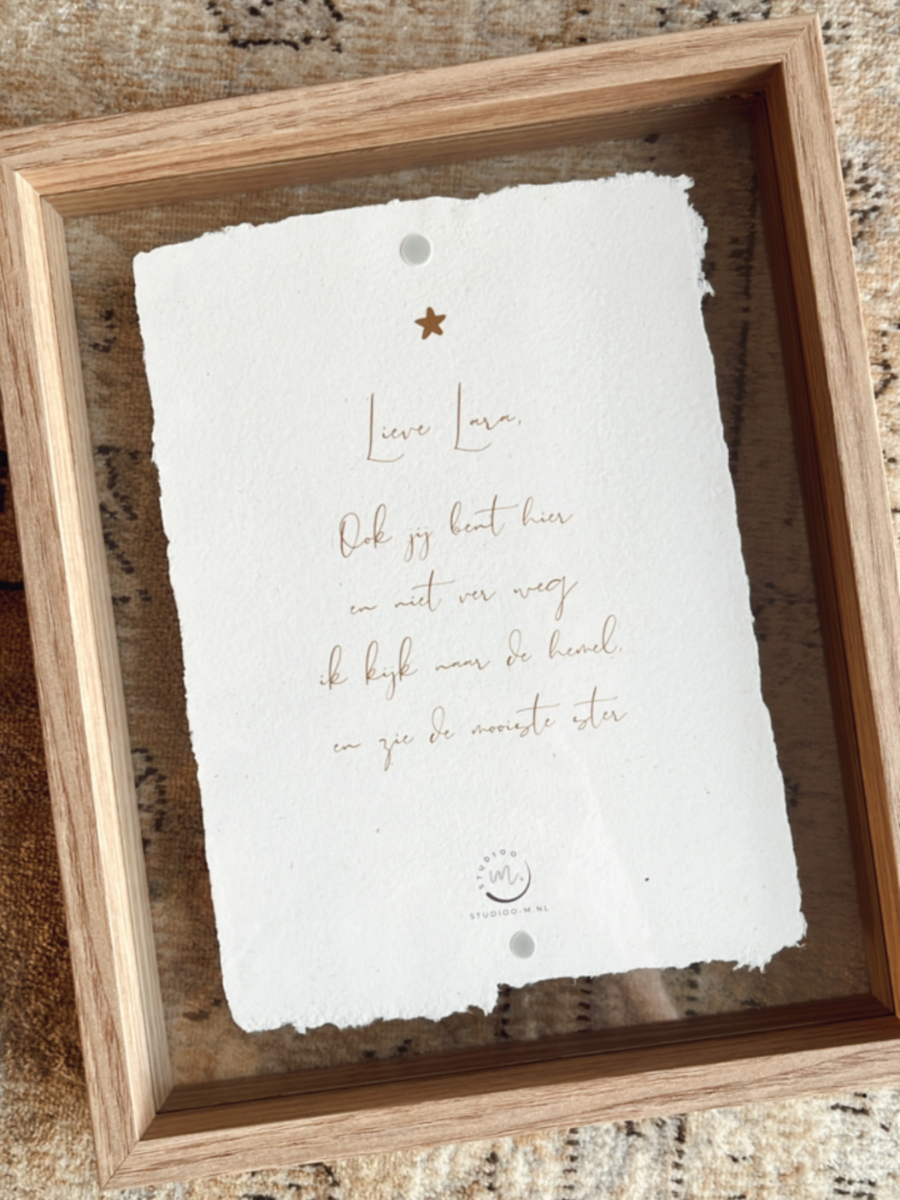 Lieve Lara,
Ook jij bent hier
en niet ver weg
ik kijk naar de hemel,
en zie de mooiste ster
STUDIOO
m.
STUDIOO-M.NL